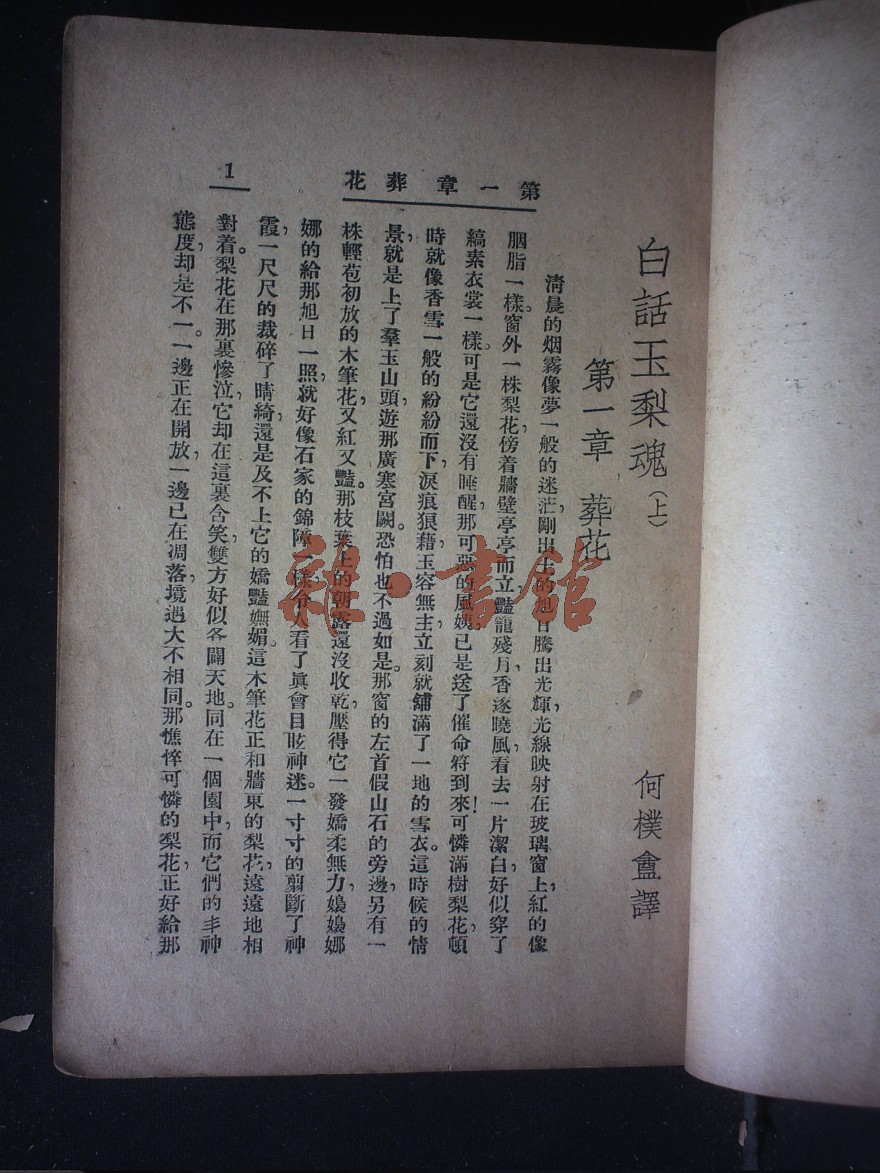 白話玉梨魂（上）
何樸盦譯
第一章 葬花
清晨的烟霧像夢一般的迷茫，剛出土的旭日騰出光輝，光線映射在玻璃窗上，紅的像
胭脂一樣。窗外一株梨花，傍着牆壁亭亭而立，豔籠殘月，香逐曉風，看去一片潔白，好似穿了
縞素衣裳一樣。可是它還沒有睡醒，那可惡的風姨，已是送了催命符到來！可憐滿樹梨花，頓
時就像香雪一般的紛紛而下，淚痕狼藉，玉容無主，立刻就舖滿了一地的雪衣。這時候的情
景，就是上了羣玉山頭，遊那廣寒宮闕。恐怕也不過如是。那窗的左首假山石的旁邊，另有一
株輕苞初放的木筆花，又紅又豔。那枝葉上的朝露還沒收乾，壓得它一發嬌柔無力，嬝嬝娜
娜的給那旭日一照，就好像石家的錦障一樣，令人看了眞會目眩神迷。一寸寸的翦斷了神
霞，一尺尺的裁碎了晴綺，還是及不上它的嬌豔嫵媚。這木筆花正和牆東的梨花，遠遠地相
對着。梨花在那裏慘泣，它却在這裏含笑，雙方好似各闢天地。同在一個園中，而它們的丰神
態度，却是不一。一邊正在開放，一邊已在凋落，境遇大不相同。那憔悴可憐的梨花，正好給那
第一章 葬花
1
雜·書館